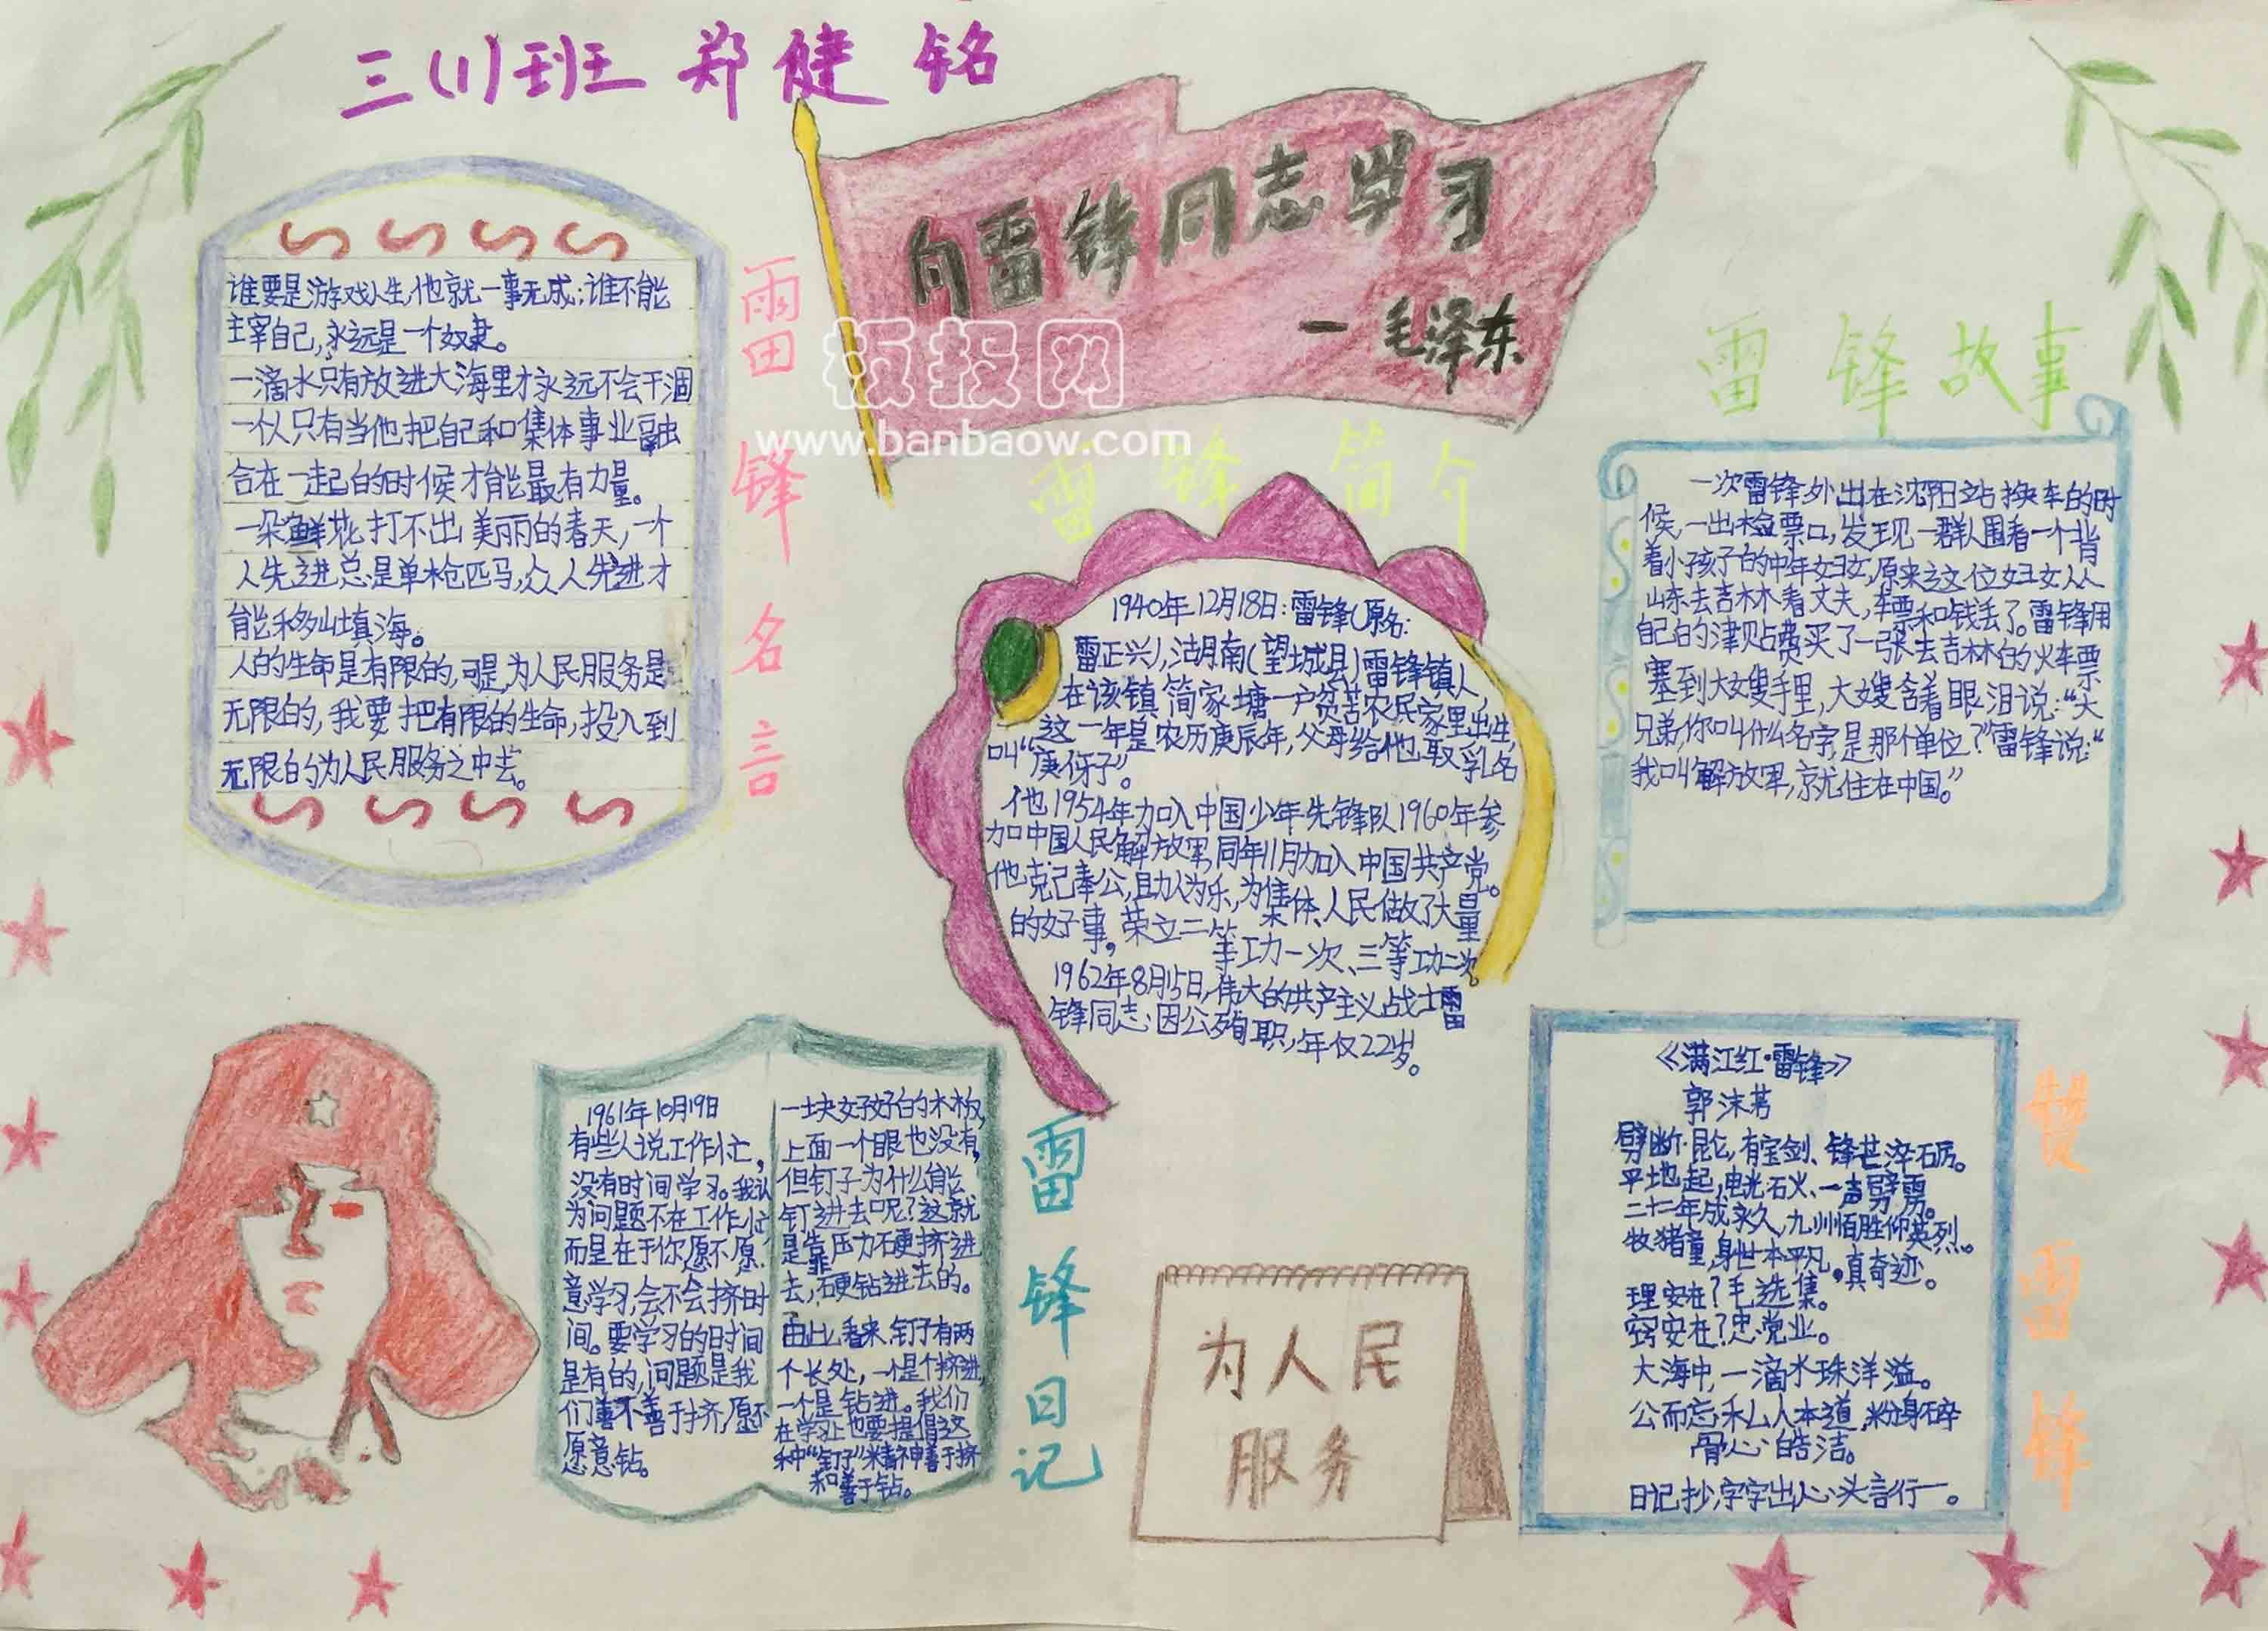 三(1)班 郑健铭
向雷锋同志学习
一毛泽东
板报网
www.banbaow.com
雷锋名言
谁要是游戏人生,他就一事无成;谁不能
主宰自己,永远是一个奴隶。
一滴水只有放进大海里才永远不会干涸
一个人只有当他把自己和集体事业融
合在一起的时候才能最有力量。
一朵鲜花打不出美丽的春天,一个
人先进总是单枪匹马,众人先进才
能移山填海。
人的生命是有限的,可是,为人民服务是
无限的,我要把有限的生命,投入到
无限的为人民服务之中去。
雷锋简介
1940年12月18日:雷锋(原名:
雷正兴),湖南(望城县)雷锋镇人,
在该镇简家塘一户贫苦农民家里出生,
这一年是农历庚辰年,父母给他取乳名
叫“庚伢子”。
他1954年加入中国少年先锋队1960年参
加中国人民解放军,同年11月加入中国共产党。
他克己奉公,助人为乐,为集体、人民做了大量
的好事,荣立二等功一次、三等功二次。
1962年8月15日,伟大的共产主义战士雷
锋同志因公殉职,年仅22岁。
雷锋故事
一次雷锋外出在沈阳站换车的时
候,一出检票口,发现一群人围着一个背
着小孩子的中年妇女,原来这位妇女从
山东去吉林看丈夫,车票和钱丢了。雷锋用
自己的津贴费买了一张去吉林的火车票
塞到大嫂手里,大嫂含着眼泪说:“大
兄弟,你叫什么名字,是那个单位?”雷锋说:“
我叫解放军,就住在中国。”
1961年10月19日
有些人说工作忙,
没有时间学习。我认
为问题不在工作忙
而是在于你愿不愿
意学习,会不会挤时
间。要学习的时间
是有的,问题是我
们善不善于挤,愿不
愿意钻。
一块好好的木板,
上面一个眼也没有,
但钉子为什么能
钉进去呢?这就
是靠压力硬挤进
去,硬钻进去的。
由此看来,钉子有两
个长处,一个是个挤进,
一个是钻进。我们
在学习上也要提倡这
种“钉子”精神善于挤
和善于钻。
雷锋日记
为人民
服务
《满江红·雷锋》
郭沫若
劈断昆仑,有宝剑、锋芒淬砺。
平地起,电光石火、一声劈雳。
二十二年成永久,九州佰胜仰英烈。
牧猪童,身世本平凡,真奇迹。
理安在?毛选集。
窍安在?忠党业。
大海中,一滴水珠洋溢。
公而忘私人本道,粉身碎
骨心皓洁。
日记抄,字字出心头言行一。
赞雷锋